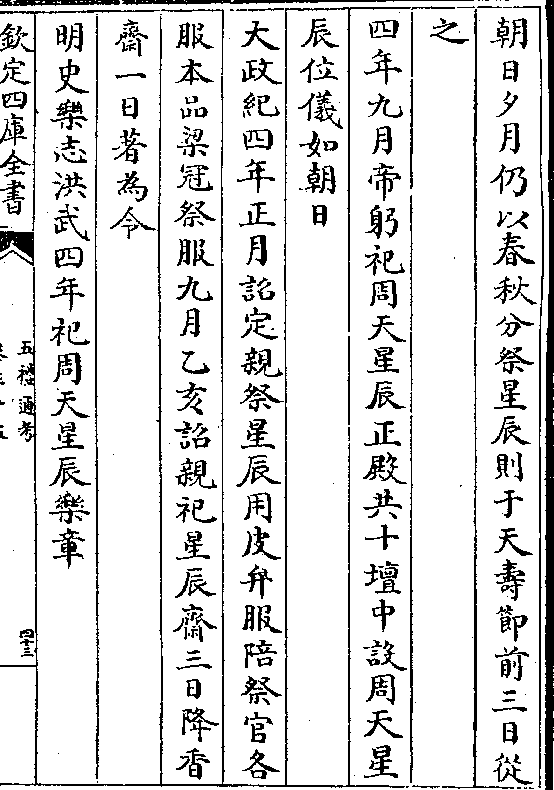 朝日夕月仍以春秋分祭星辰則于天壽節前三日從
之
四年九月帝躬祀周天星辰正殿共十壇中設周天星
辰位儀如朝日
大政紀四年正月詔定親祭星辰用皮弁服陪祭官各
服本品梁冠祭服九月乙亥詔親祀星辰齋三日降香
齋一日著為令
明史樂志洪武四年祀周天星辰樂章
欽定四庫全書
五禮通考
四十三